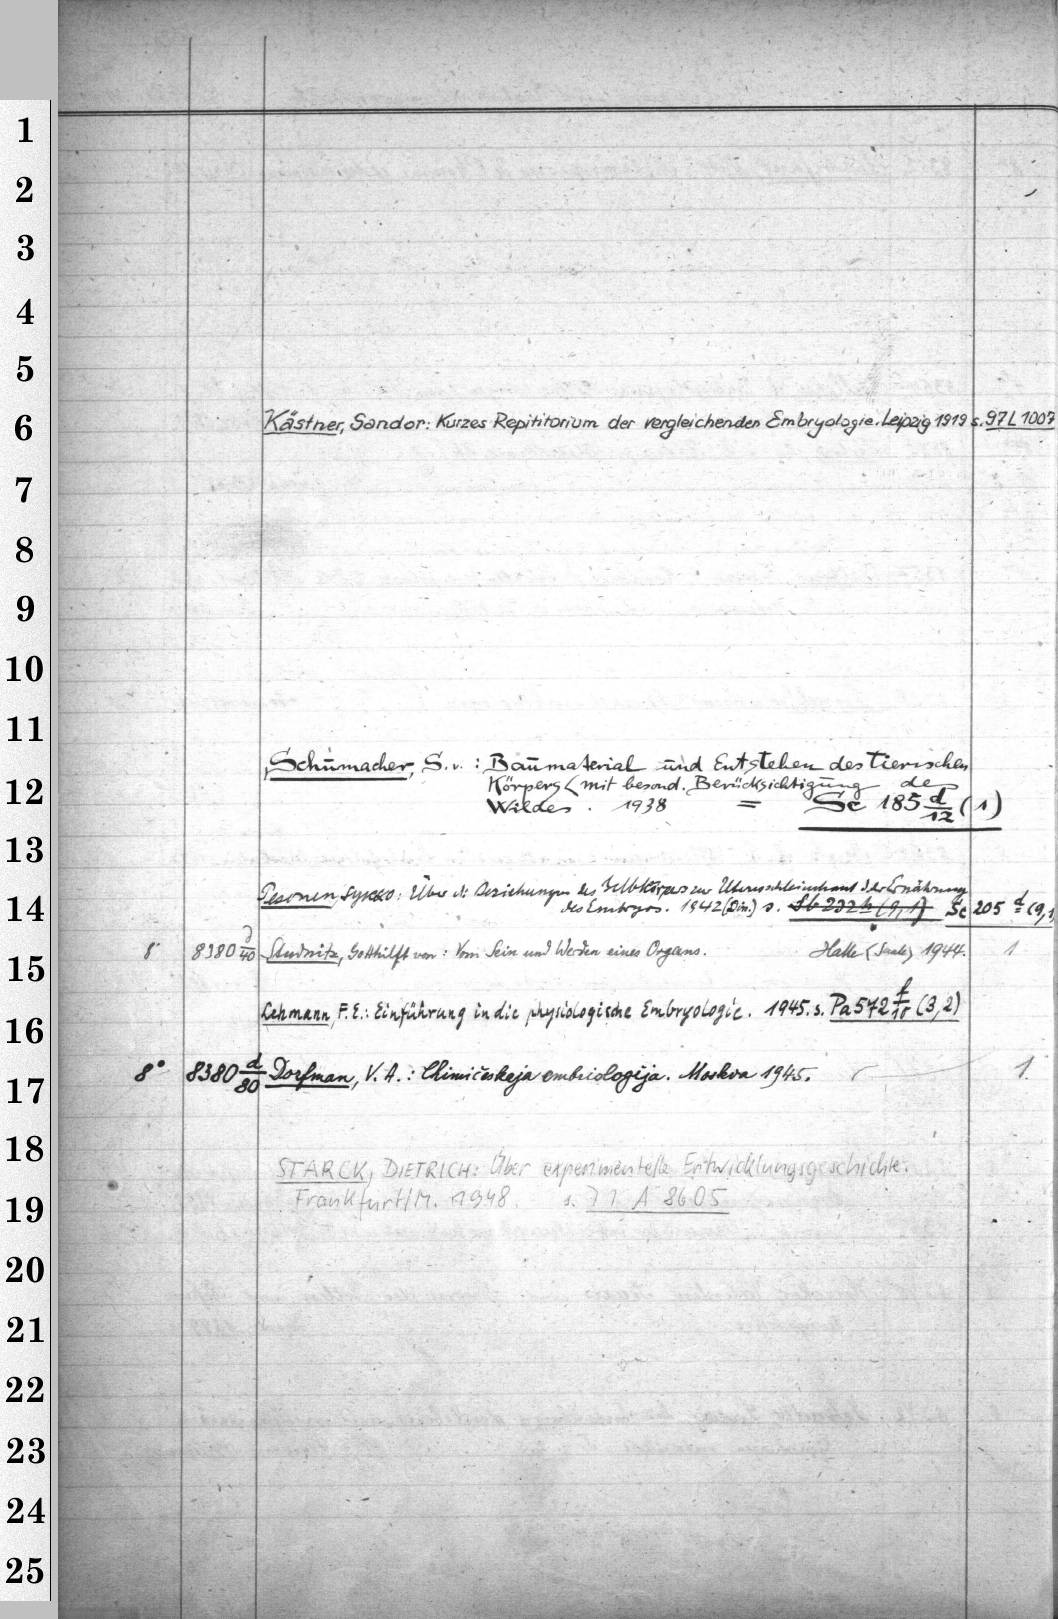 1
2
3
4
5
6
Kästner, Sandor: Kurzes Repititorium der vergleichenden Embryologie. Leipzig 1919 s. 97 L 1007
7
8
9
10
11
Schumacher, S. v. : Baumaterial und Entstehen des Tierischen
12
Körpers (mit besond. Berücksichtigung des
Wildes. 1938 = Sc 185 d/12 (1)
13
Pesonen, Sykkö: Über d. Beziehungen des Gelbkörpers zur Uterusschleimhaut u. der Ernährung
14
des Embryos. 1942 (Diss.) s. Sb 232 h (9,1) Sc 205 d (9,1
15
8° 8380 d/40 Studnitz, Gotthilft von: Vom Sein und Werden eines Organs. Halle (Saale) 1944. 1
16
Lehmann, F. E.: Einführung in die physiologische Embryologie. 1945. s. Pa 572 f/10 (3,2)
17
8° 8380 d/80 Dorfman, V. A.: Chimičeskaja embriologija. Moskva 1945. 1.
18
STARCK, DIETRICH: Über experimentelle Entwicklungsgeschichte.
19
Frankfurt/M. 1948. s. 71 A 8605
20
21
22
23
24
25